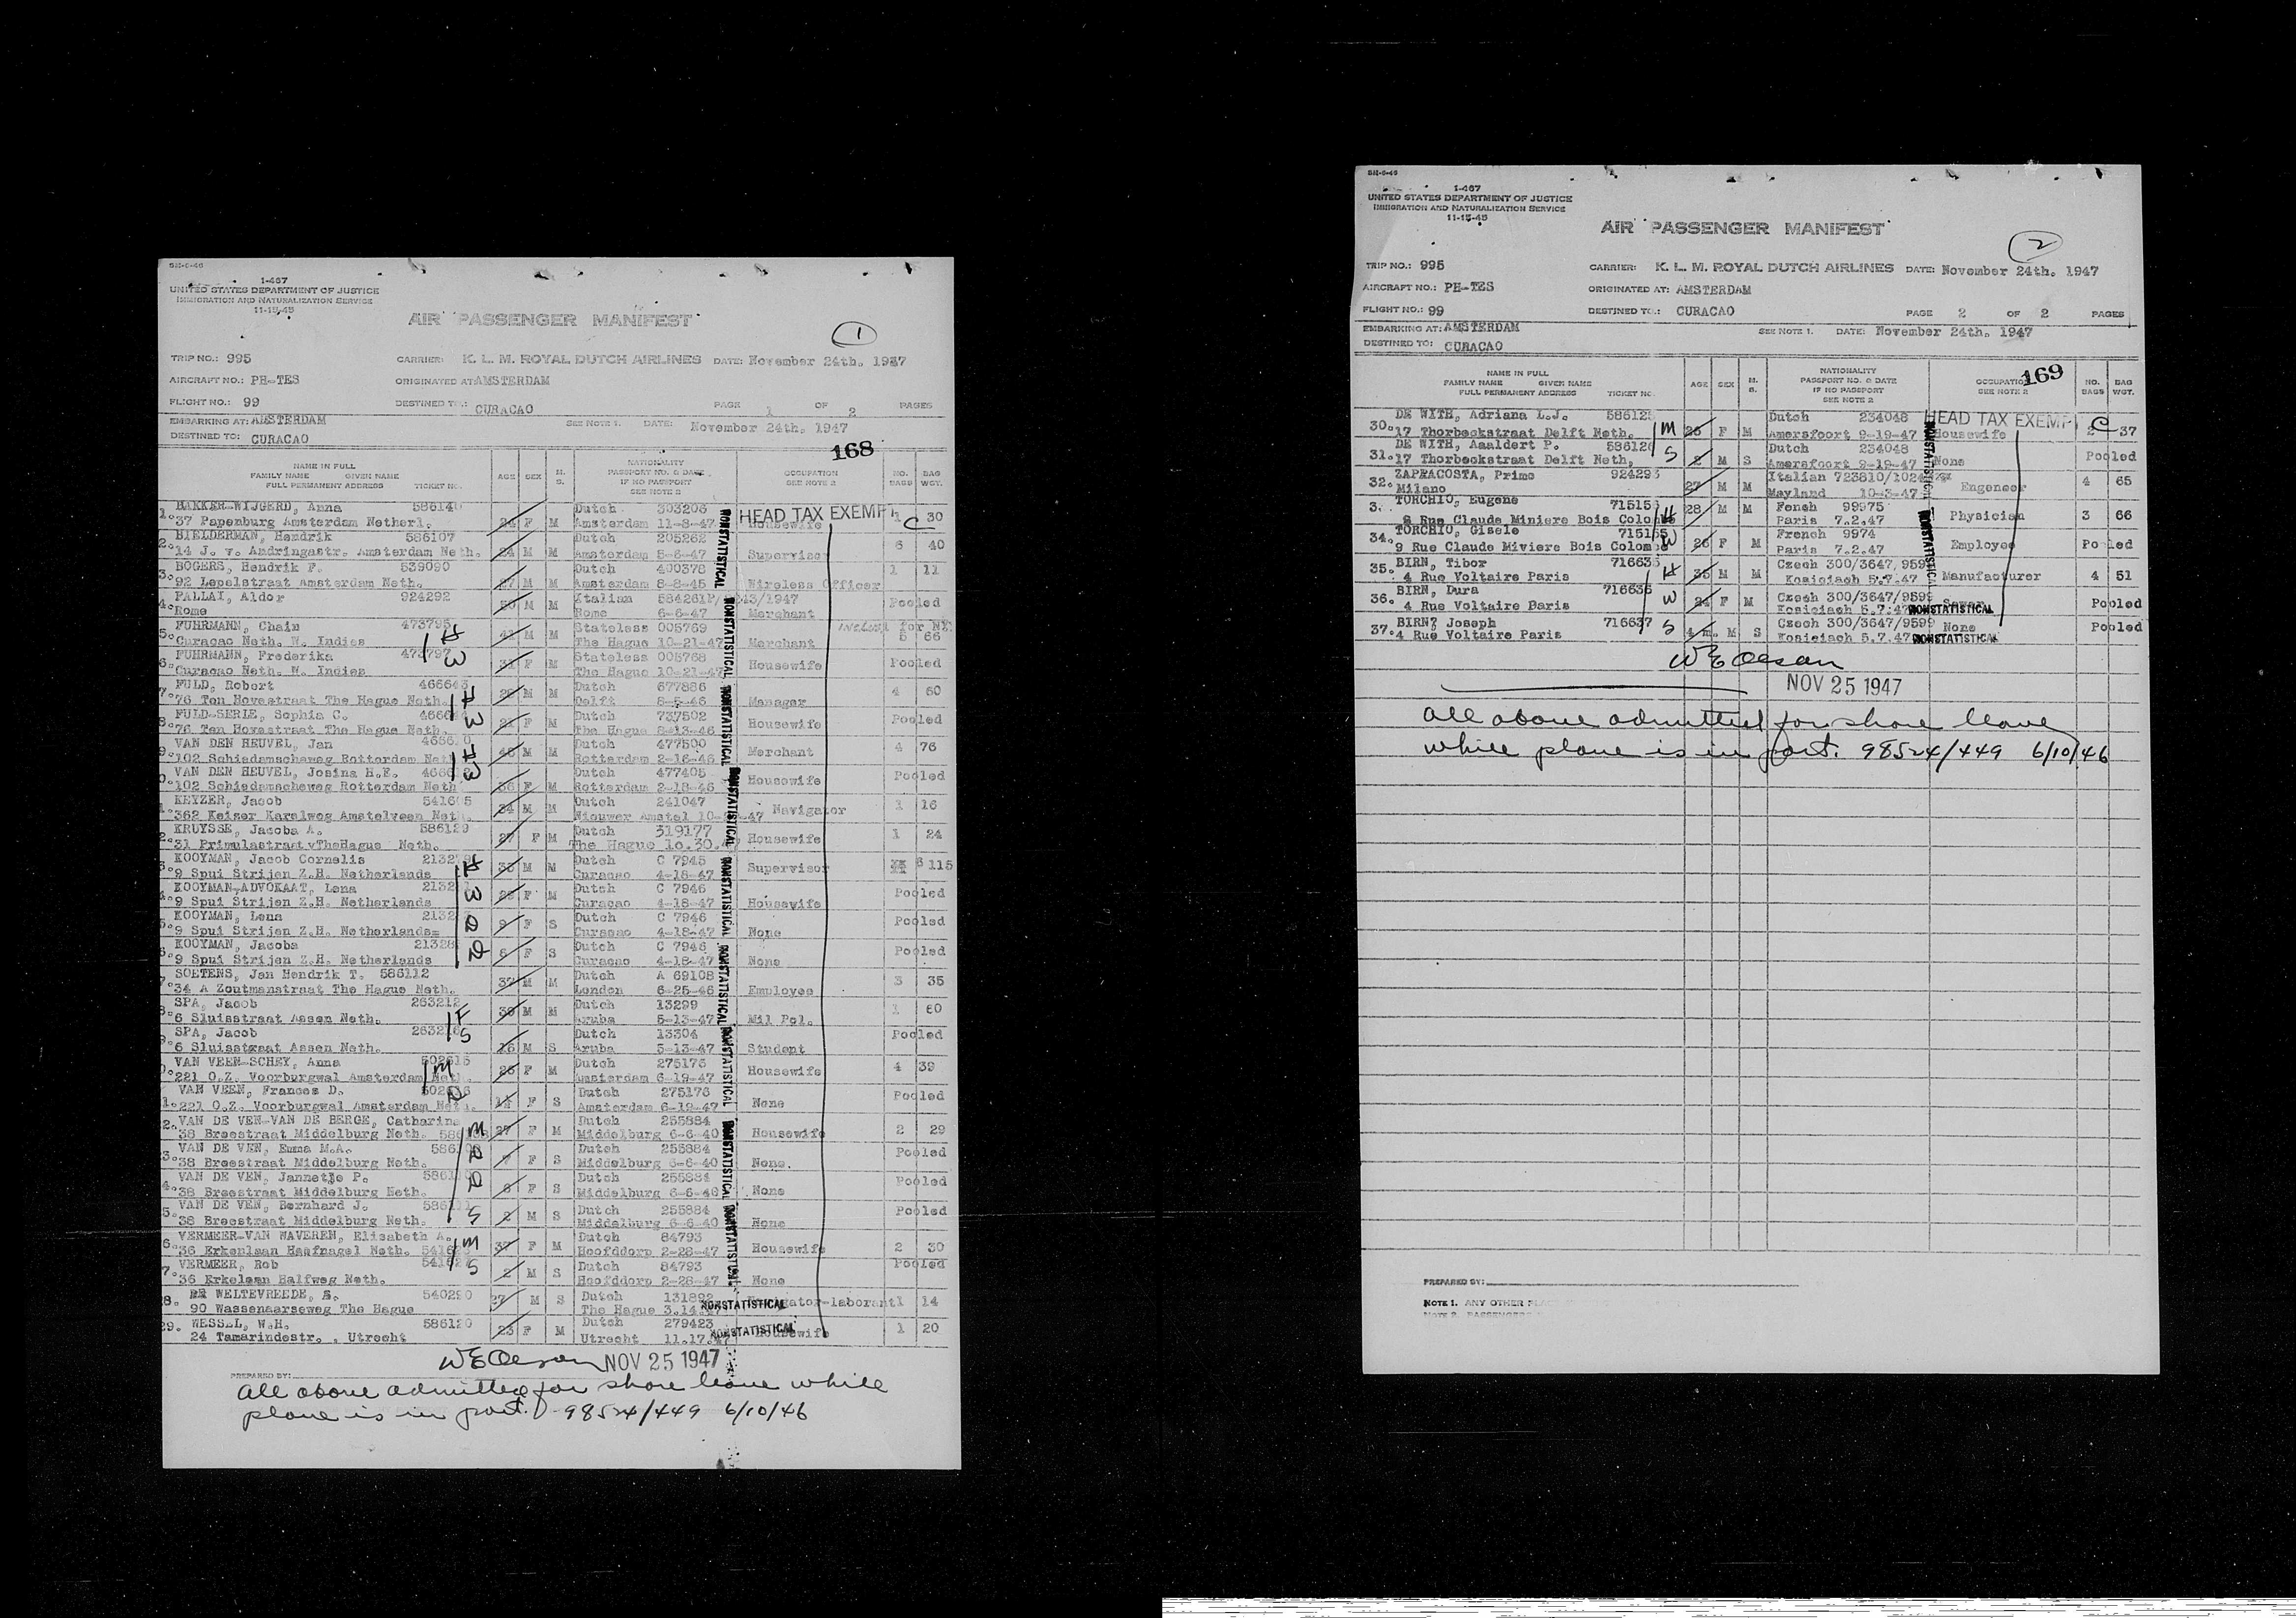 SM-6-46
1-467
UNITED STATES DEPARTMENT OF JUSTICE
IMMIGRATION AND NATURALIZATION SERVICE
11-15-45
AIR PASSENGER MANIFEST
1
TRIP NO.: 995 CARRIER: K. L. M. ROYAL DUTCH AIRLINES DATE: November 24th, 1947
AIRCRAFT NO.: PH-TES ORIGINATED AT: AMSTERDAM
FLIGHT NO.: 99 DESTINED TO: CURACAO PAGE 1 OF 2 PAGES
EMBARKING AT: AMSTERDAM SEE NOTE 1. DATE: November 24th, 1947
DESTINED TO: CURACAO
168
NAME IN FULL FAMILY NAME GIVEN NAME FULL PERMANENT ADDRESS TICKET NO. AGE SEX M. S. NATIONALITY PASSPORT NO. & DATE IF NO PASSPORT SEE NOTE 2 OCCUPATION SEE NOTE 2 NO. BAGS BAG WGT.
BAKKER-WIJGERD, Anna 586140 Dutch 303203 HEAD TAX EXEMPT
37 Papenburg Amsterdam Netherl. F M Amsterdam 11-8-47 Housewife 1 C 30
BIELDERMAN, Hendrik 586107 Dutch 205262
14 J. v. Andringastr. Amsterdam Neth. 24 M M Amsterdam 5-6-47 Supervisor 6 40
BOGERS, Hendrik F. 539090 Dutch 400378
92 Lepelstraat Amsterdam Neth. 27 M M Amsterdam 8-8-45 Wireless Officer 1 11
PALLAI, Aldor 924292 Italian
Rome 50 M M Rome 6-6-47 Merchant Pooled
FUHRMANN, Chain 473795 Stateless 005769
Curacao Neth. W. Indies H 41 M M The Hague 10-21-47 Merchant 5 66
FUHRMANN, Frederika 473797 Stateless 005768
Curacao Neth. W. Indies W 31 F M The Hague 10-21-47 Housewife Pooled
FULD, Robert 466643 Dutch 677886
76 Ten Hovestraat The Hague Neth. H M M Delft 5-5-46 Manager 4 60
FULD-SERLE, Sophia C. Dutch 737502
76 Ten Hovestraat The Hague Neth. W 21 F M The Hague 8-13-46 Housewife Pooled
VAN DEN HEUVEL, Jan Dutch 477500
102 Schiedamscheweg Rotterdam Neth H 48 M M Rotterdam 2-18-46 Merchant 4 76
VAN DEN HEUVEL, Josina H.E. Dutch 477405
102 Schiedamscheweg Rotterdam Neth W 36 F M Rotterdam 2-18-46 Housewife Pooled
KEYZER, Jacob Dutch 241047
362 Keizer Karelweg Amstelveen Neth. 34 M M Nieuwer Amstel Navigator 1 16
KRUYSSE, Jacoba A. 586129 Dutch 319177
31 Primulastraat TheHague Neth. 27 F M The Hague 10.30.47 Housewife 1 24
KOOYMAN, Jacob Cornelis Dutch C 7945
9 Spui Strijen Z.H. Netherlands H 33 M M Curacao 4-18-47 Supervisor 6 115
KOOYMAN-ADVOKAAT, Lena Dutch C 7946
9 Spui Strijen Z.H. Netherlands W F M Curacao 4-18-47 Housewife Pooled
KOOYMAN, Lena Dutch C 7946
9 Spui Strijen Z.H. Netherlands D 9 F S Curacao 4-18-47 None Pooled
KOOYMAN, Jacoba Dutch C 7946
9 Spui Strijen Z.H. Netherlands D 6 F S Curacao 4-18-47 None Pooled
SOETENS, Jan Hendrik T. 586112 Dutch A 69108
34 A Zoutmanstraat The Hague Neth. 37 M M London 6-25-46 Employee 3 35
SPA, Jacob 263212 Dutch 13299
6 Sluisstraat Assen Neth. F 30 M M Aruba 5-13-47 Mil Pol. 1 60
SPA, Jacob Dutch 13304
6 Sluisstraat Assen Neth. S 16 M S Aruba 5-13-47 Student Pooled
VAN VEEN-SCHEY, Anna 502616 Dutch 275175
221 O.Z. Voorburgwal Amsterdam Neth. M 36 F M Amsterdam 6-19-47 Housewife 4 39
VAN VEEN, Frances D. Dutch 275176
221 O.Z. Voorburgwal Amsterdam Neth. D F S Amsterdam 6-19-47 None Pooled
VAN DE VEN-VAN DE BERGE, Catharina Dutch 255884
38 Breestraat Middelburg Neth. M 37 F M Middelburg 6-6-40 Housewife 2 29
VAN DE VEN, Emma M.A. Dutch 255884
38 Breestraat Middelburg Neth. D 7 F S Middelburg 6-6-40 None. Pooled
VAN DE VEN, Jannetje P. Dutch 255884
38 Breestraat Middelburg Neth. D F S Middelburg 6-6-40 None Pooled
VAN DE VEN, Bernhard J. Dutch 255884
38 Breestraat Middelburg Neth. S 2 M S Middelburg 6-6-40 None Pooled
VERMEER-VAN WAVEREN, Elisabeth A. Dutch 84793
36 Erkenlaan Haafnagel Neth. M 37 F M Hoofddorp 2-28-47 Housewife 2 30
VERMEER, Rob Dutch 84793
36 Erkelaan Halfweg Neth. S 2 M S Hoofddorp 2-28-47 None Pooled
WELTEVREEDE, 540290 27 M S Dutch 131892 1 14
90 Wassenaarseweg The Hague The Hague 3.14.47 NONSTATISTICAL
29. WESSEL, W.H. 586120 Dutch 279423
24 Tamarindestr. , Utrecht 23 F M Utrecht 11.17.47 NONSTATISTICAL Housewife 1 20
W E Olesan NOV 25 1947
PREPARED BY:
all above admitted for shore leave while
plane is in port. 98524/449 6/10/46
SM-6-46
1-467
UNITED STATES DEPARTMENT OF JUSTICE
IMMIGRATION AND NATURALIZATION SERVICE
11-15-45
AIR PASSENGER MANIFEST
2
TRIP NO.: 995 CARRIER: K. L. M. ROYAL DUTCH AIRLINES DATE: November 24th, 1947
AIRCRAFT NO.: PH-TES ORIGINATED AT: AMSTERDAM
FLIGHT NO.: 99 DESTINED TO: CURACAO PAGE 2 OF 2 PAGES
EMBARKING AT: AMSTERDAM SEE NOTE 1. DATE: November 24th, 1947
DESTINED TO: CURACAO
169
NAME IN FULL FAMILY NAME GIVEN NAME FULL PERMANENT ADDRESS TICKET NO. AGE SEX M. S. NATIONALITY PASSPORT NO. & DATE IF NO PASSPORT SEE NOTE 2 OCCUPATION SEE NOTE 2 NO. BAGS BAG WGT.
DE WITH, Adriana L.J. 586125 Dutch 234048 HEAD TAX EXEMPT
30. 17 Thorbeckstraat Delft Neth. M F M Amersfoort 9-19-47 Housewife 2 C 37
DE WITH, Aaaldert P. 586126 Dutch 234048
31. 17 Thorbeckstraat Delft Neth, S 2 M S Amersfoort 9-19-47 None Pooled
ZAPRACOSTA, Primo 924293 Italian
32. Milano 27 M M Mayland 10-3-47 Engeneer 4 65
TORCHIO, Eugene Fench 99975
9 Rue Claude Miniere Bois Colombes H 28 M M Paris 7.2.47 Physician 3 66
TORCHIO, Gisele French 9974
34. 9 Rue Claude Miviere Bois Colombe W 26 F M Paris 7.2.47 Employee Pooled
BIRN, Tibor 716635 Czech 300/3647, 9599
35. 4 Rue Voltaire Paris H 35 M M Kosiciach 5.7.47 Manufacturer 4 51
BIRN, Dura 716636 Czech 300/3647/9599
36. 4 Rue Voltaire Paris W 24 F M Kosiciach 5.7.47 NONSTATISTICAL Pooled
BIRN? Joseph 716637 Czech 300/3647/9599
37. 4 Rue Voltaire Paris S 4 m. M S Kosiciach 5.7.47 NONSTATISTICAL None Pooled
W E Olesan
NOV 25 1947
all above admitted for shore leave
while plane is in port. 98524/449 6/10/46
PREPARED BY:
NOTE 1. ANY OTHER
NOTE 2. PASSENGERS